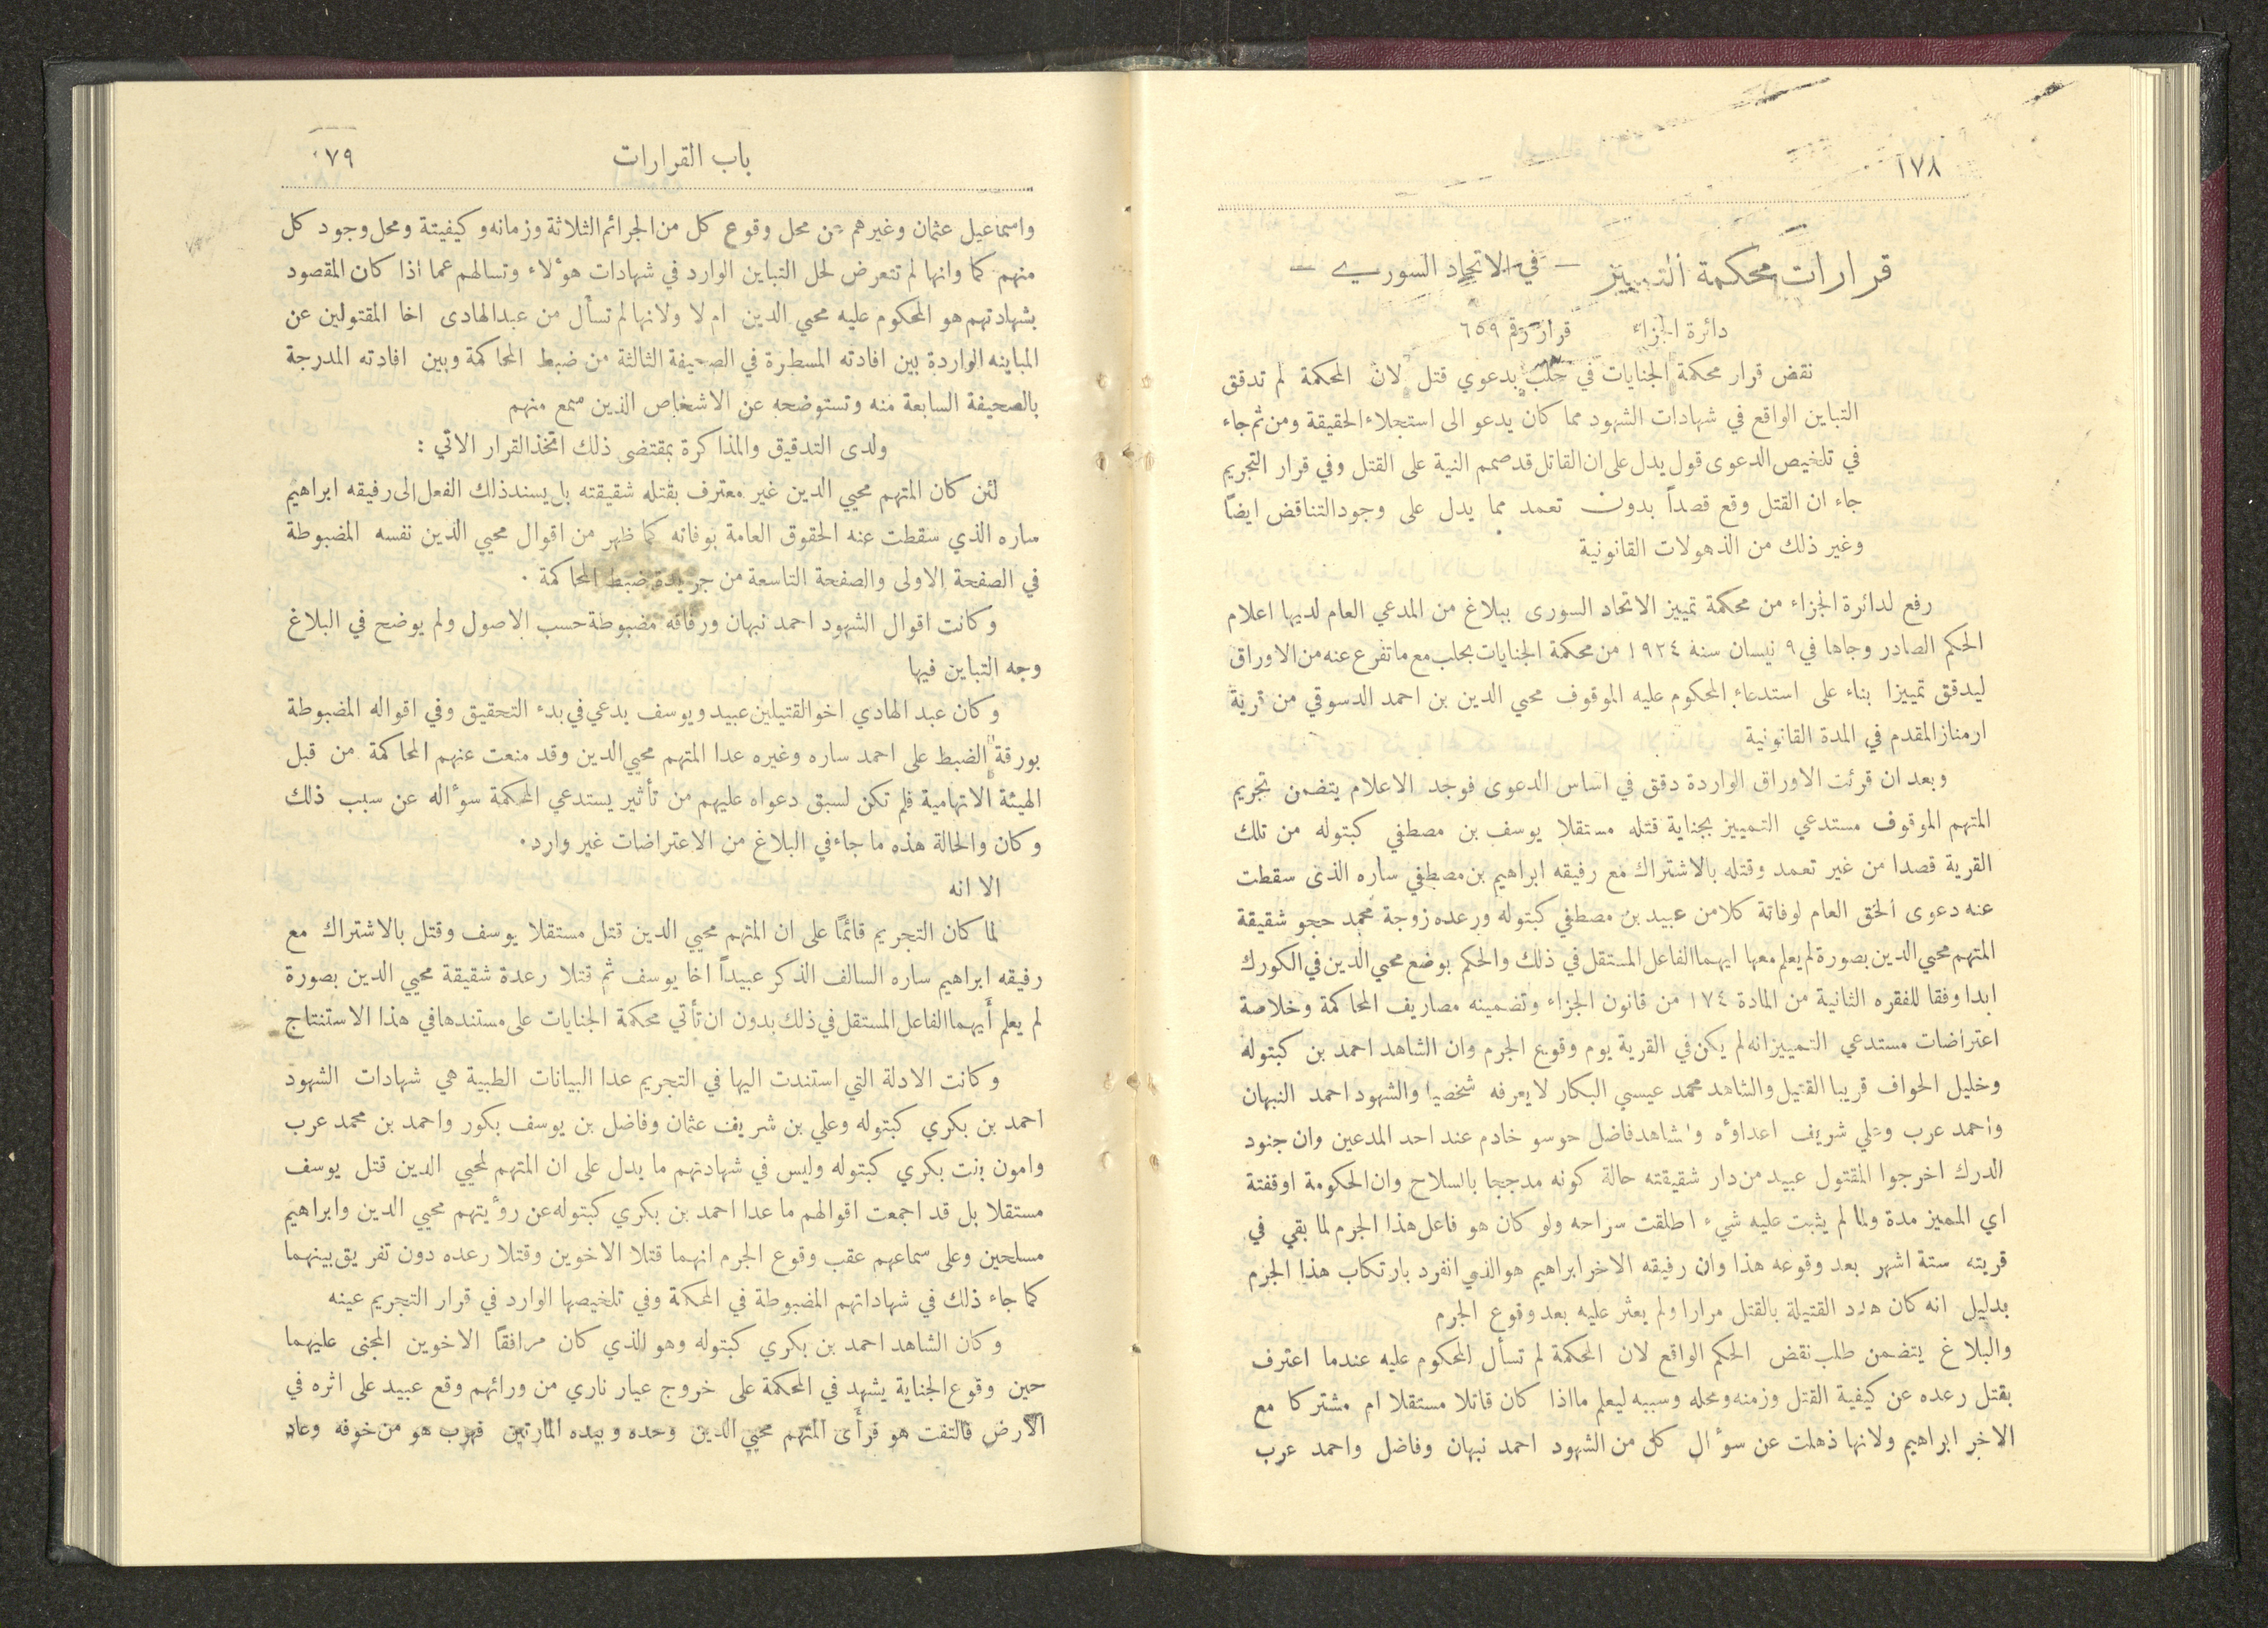 ١٧٨
قرارات محكمة التمييز — في الاتحاد السوري —
دائرة الجزاء قرار رقم ٦٥٩
نقض قرار محكمة الجنايات في حلب بدعوي قتل لان المحكمة لم تدقق
التباين الواقع في شهادات الشهود مما كان يدعو الى استجلاء الحقيقة ومن ثم جاء
في تلخيص الدعوى قول يدل على ان القاتل قد صمم النية على القتل وفي قرار التجريم
جاء ان القتل وقع قصداً بدون تعمد مما يدل على وجود التناقض ايضاً
وغير ذلك من الذهولات القانونية
رفع لدائرة الجزاء من محكمة تمييز الاتحاد السورى ببلاغ من المدعي العام لديها اعلام
الحكم الصادر وجاها في ٩ نيسان سنة ١٩٢٤ من محكمة الجنايات بحلب مع ما تفرع عنه من الاوراق
ليدقق تمييزا بناء على استدعاء المحكوم عليه الموقوف محيي الدين بن احمد الدسوقي من قرية
ارمناز المقدم في المدة القانونية
وبعد ان قرئت الاوراق الواردة دقق في اساس الدعوى فوجد الاعلام يتضمن تجريم
المتهم الموقوف مستدعي التمييز بجناية قتله مستقلا يوسف بن مصطفي كبتوله من تلك
القرية قصدا من غير تعمد وقتله بالاشتراك مع رفيقه ابراهيم بن مصطفي ساره الذى سقطت
عنه دعوى الحق العام لوفاتة كلا من عبيد بن مصطفي كبتوله ورعده زوجة محمد حجو شقيقة
المتهم محيي الدين بصورة لم يعلم معها ايهما الفاعل المستقل في ذلك والحكم بوضع محيي الدين في الكورك
ابدا وفقا للفقره الثانية من المادة ١٧٤ من قانون الجزاء وتضمينه مصاريف المحاكمة وخلاصة
اعتراضات مستدعي التمييز انه لم يكن في القرية يوم وقوع الجرم وان الشاهد احمد بن كبتوله
وخليل الحواف قريبا القتيل والشاهد محمد عيسي البكار لا يعرفه شخصيا والشهود احمد النبهان
واحمد عرب وعلي شريف اعداؤه والشاهد فاضل حوسو خادم عند احد المدعين وان جنود
الدرك اخرجوا المقتول عبيد من دار شقيقته حالة كونه مدججا بالسلاح وان الحكومة اوقفتة
اي المميز مدة ولما لم يثبت عليه شيء اطلقت سراحه ولو كان هو فاعل هذا الجرم لما بقي في
قريته ستة اشهر بعد وقوعه هذا وان رفيقه الاخر ابراهيم هو الذي انفرد بارتكاب هذا الجرم
بدليل انه كان هدد القتيلة بالقتل مرارا ولم يعثر عليه بعد وقوع الجرم
والبلاغ يتضمن طلب نقض الحكم الواقع لان المحكمة لم تسأل المحكوم عليه عندما اعترف
بقتل رعده عن كيفية القتل وزمنه ومحله وسببه ليعلم ما اذا كان قاتلا مستقلا ام مشتركا مع
الاخر ابراهيم ولانها ذهلت عن سؤال كل من الشهود احمد نبهان وفاضل واحمد عرب
باب القرارات ٧٩
واسماعيل عثمان وغيرهم عن محل وقوع كل من الجرائم الثلاثة وزمانه وكيفيتة ومحل وجود كل
منهم كما وانها لم تتعرض لحل التباين الوارد في شهادات هؤلاء وتسالهم عما اذا كان المقصود
بشهادتهم هو المحكوم عليه محيي الدين ام لا ولانها لم تسأل من عبد الهادى اخا المقتولين عن
المباينه الواردة بين افادته المسطرة في الصحيفة الثالثة من ضبط المحاكمة وبين افادته المدرجة
بالصحيفة السابعة منه وتستوضحه عن الاشخاص الذين سمع منهم
ولدى التدقيق والمذاكرة بمقتضى ذلك اتخذ القرار الاتي :
لئن كان المتهم محيي الدين غير معترف بقتله شقيقته بل يسند ذلك الفعل الى رفيقه ابراهيم
ساره الذي سقطت عنه الحقوق العامة بوفاته كما ظهر من اقوال محيي الدين نفسه المضبوطة
في الصفحة الاولى والصفحة التاسعة من جريدة ضبط المحاكمة .
وكانت اقوال الشهود احمد نبهان ورفاقه مضبوطة حسب الاصول ولم يوضح في البلاغ
وجه التباين فيها
وكان عبد الهادي اخو القتيلين عبيد ويوسف يدعي في بدء التحقيق وفي اقواله المضبوطة
بورقة الضبط على احمد ساره وغيره عدا المتهم محيي الدين وقد منعت عنهم المحاكمة من قبل
الهيئة الاتهامية فلم تكن لسبق دعواه عليهم من تأثير يستدعي المحكمة سؤاله عن سبب ذلك
وكان والحالة هذه ما جاء في البلاغ من الاعتراضات غير وارد .
الا انه
لما كان التجريم قائماً على ان المتهم محيي الدين قتل مستقلا يوسف وقتل بالاشتراك مع
رفيقه ابراهيم ساره السالف الذكر عبيداً اخا يوسف ثم قتلا رعدة شقيقة محيي الدين بصورة
لم يعلم أيهما الفاعل المستقل في ذلك بدون ان تأتي محكمة الجنايات على مستندها في هذا الاستنتاج
وكانت الادلة التي استندت اليها في التجريم عدا البيانات الطبية هي شهادات الشهود
احمد بن بكري كبتوله وعلي بن شريف عثمان وفاضل بن يوسف بكور واحمد بن محمد عرب
وامون بنت بكري كبتوله وليس في شهادتهم ما يدل على ان المتهم لمحيي الدين قتل يوسف
مستقلا بل قد اجمعت اقوالهم ما عدا احمد بن بكري كبتوله عن رؤيتهم محيي الدين وابراهيم
مسلحين وعلى سماعهم عقب وقوع الجرم انهما قتلا الاخوين وقتلا رعده دون تفريق بينهما
كما جاء ذلك في شهاداتهم المضبوطة في المحكمة وفي تلخيصها الوارد في قرار التجريم عينه
وكان الشاهد احمد بن بكري كبتوله وهو الذي كان مرافقاً الاخوين المجنى عليهما
حين وقوع الجناية يشهد في المحكمة على خروج عيار ناري من ورائهم وقع عبيد على اثره في
الارض فالتفت هو فرأى المتهم محيي الدين وحده وبيده المارتين فهرب هو من خوفه وعاد